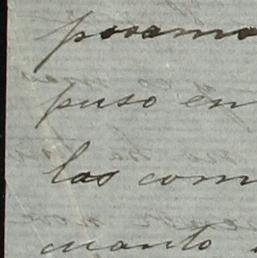 puso en
las com
cuanto